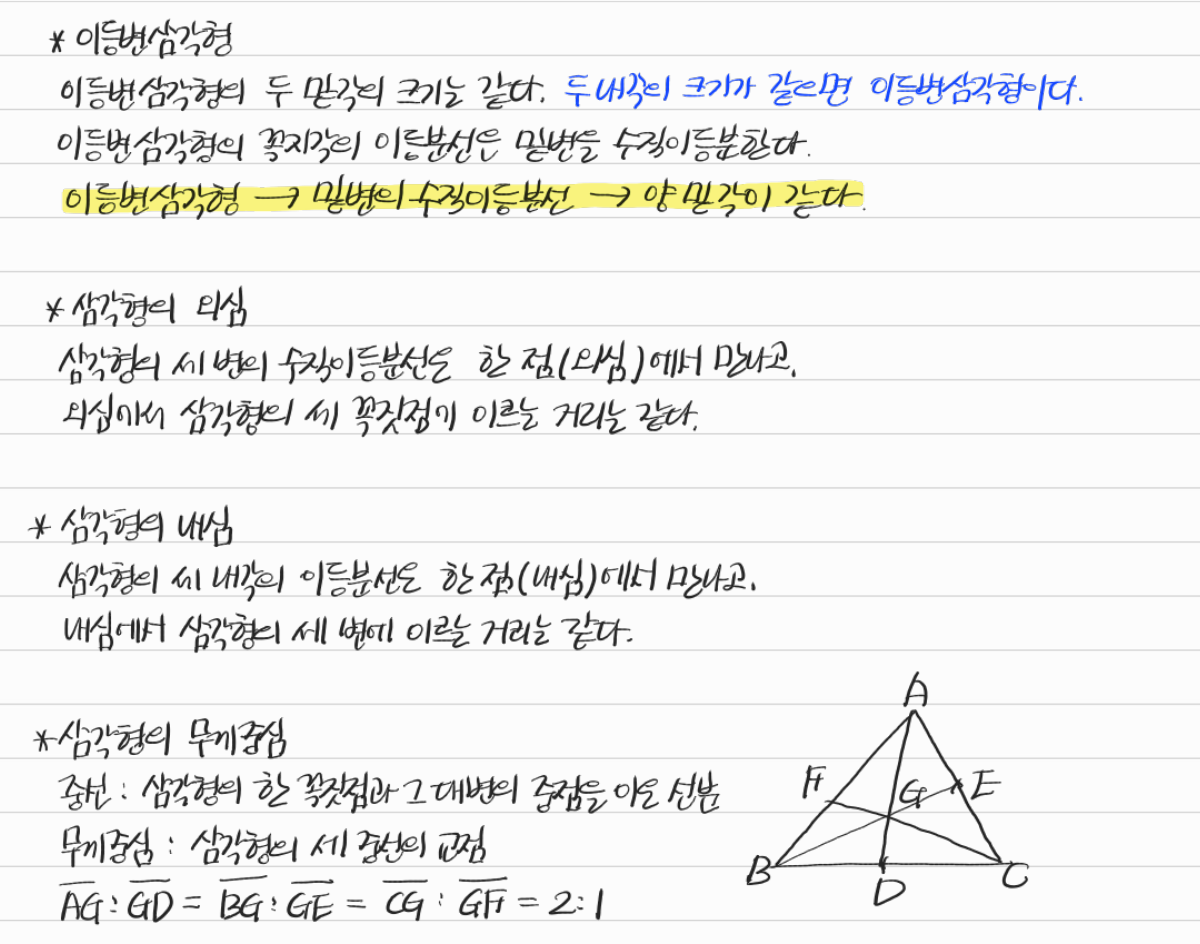 * 이등변삼각형
이등변삼각형의 두 밑각의 크기는 같다. 두 내각의 크기가 같으면 이등변삼각형이다.
이등변삼각형의 꼭지각의 이등분선은 밑변을 수직이등분한다.
이등변삼각형 → 밑변의 수직이등분선 → 양 밑각이 같다.
* 삼각형의 외심
삼각형의 세 변의 수직이등분선은 한 점(외심)에서 만나고,
외심에서 삼각형의 세 꼭짓점에 이르는 거리는 같다.
* 삼각형의 내심
삼각형의 세 내각의 이등분선은 한 점(내심)에서 만나고,
내심에서 삼각형의 세 변에 이르는 거리는 같다.
* 삼각형의 무게중심
중선 : 삼각형의 한 꼭짓점과 그 대변의 중점을 이은 선분
무게중심 : 삼각형의 세 중선의 교점
A̅G̅ : G̅D̅ = B̅G̅ : G̅E̅ = C̅G̅ : G̅F̅ = 2 : 1
A
F
G
E
B
D
C